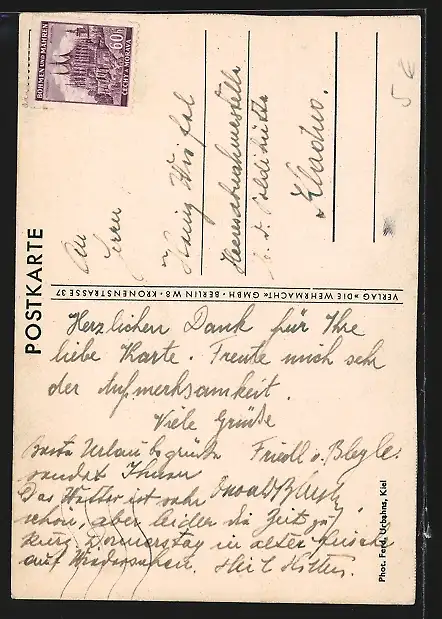 BÖHMEN UND MÄHREN
60h
ČECHY A MORAVA
5 €
POSTKARTE
An
Herrn
Heeresabnahmestelle
Kladno.
VERLAG »DIE WEHRMACHT« GMBH · BERLIN W 8 · KRONENSTRASSE 37
Herzlichen Dank für Ihre
liebe Karte. Freute mich sehr
der Aufmerksamkeit.
Viele Grüße
Friedl u.
Beste Urlaubsgrüße
sendet Ihnen
Das Wetter ist sehr
schön, aber leider die Zeit zu
kurz Donnerstag in alter Frische
auf Wiedersehen. Heil Hitler.
Phot. Ferd. Urbahns, Kiel